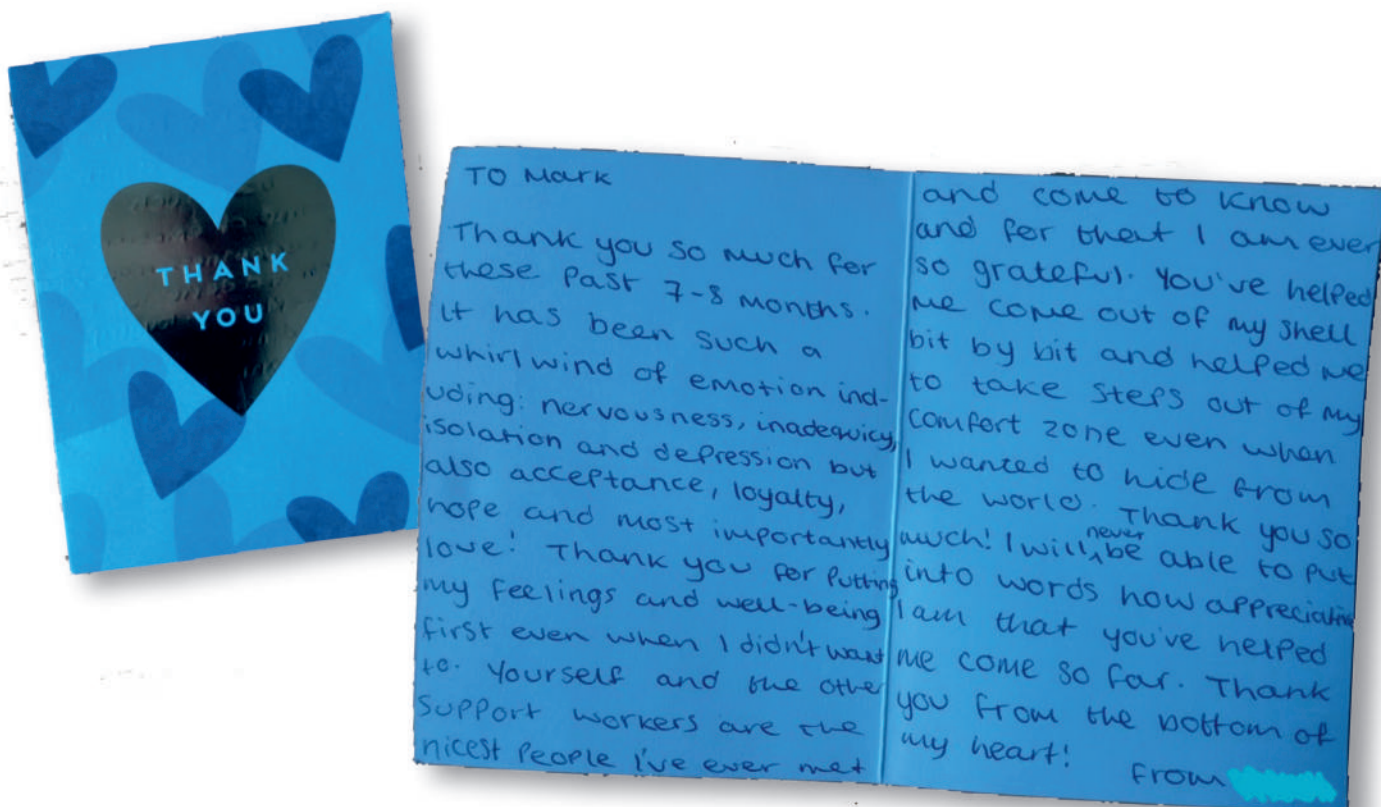 THANK
YOU
TO Mark
Thank you so much for
these past 7-8 months.
It has been such a
whirlwind of emotion incl-
uding: nervousness, inadequicy,
isolation and depression but
also acceptance, loyalty,
hope and most importantly
love! Thank you for putting
my feelings and well-being
first even when I didn't want
to. Yourself and the other
support workers are the
nicest people I've ever met
and come to know
and for that I am ever
so grateful. You've helped
me come out of my shell
bit by bit and helped me
to take steps out of my
comfort zone even when
I wanted to hide from
the world. Thank you so
much! I will never be able to put
into words how appreciative
I am that you've helped
me come so far. Thank
you from the bottom of
my heart!
from